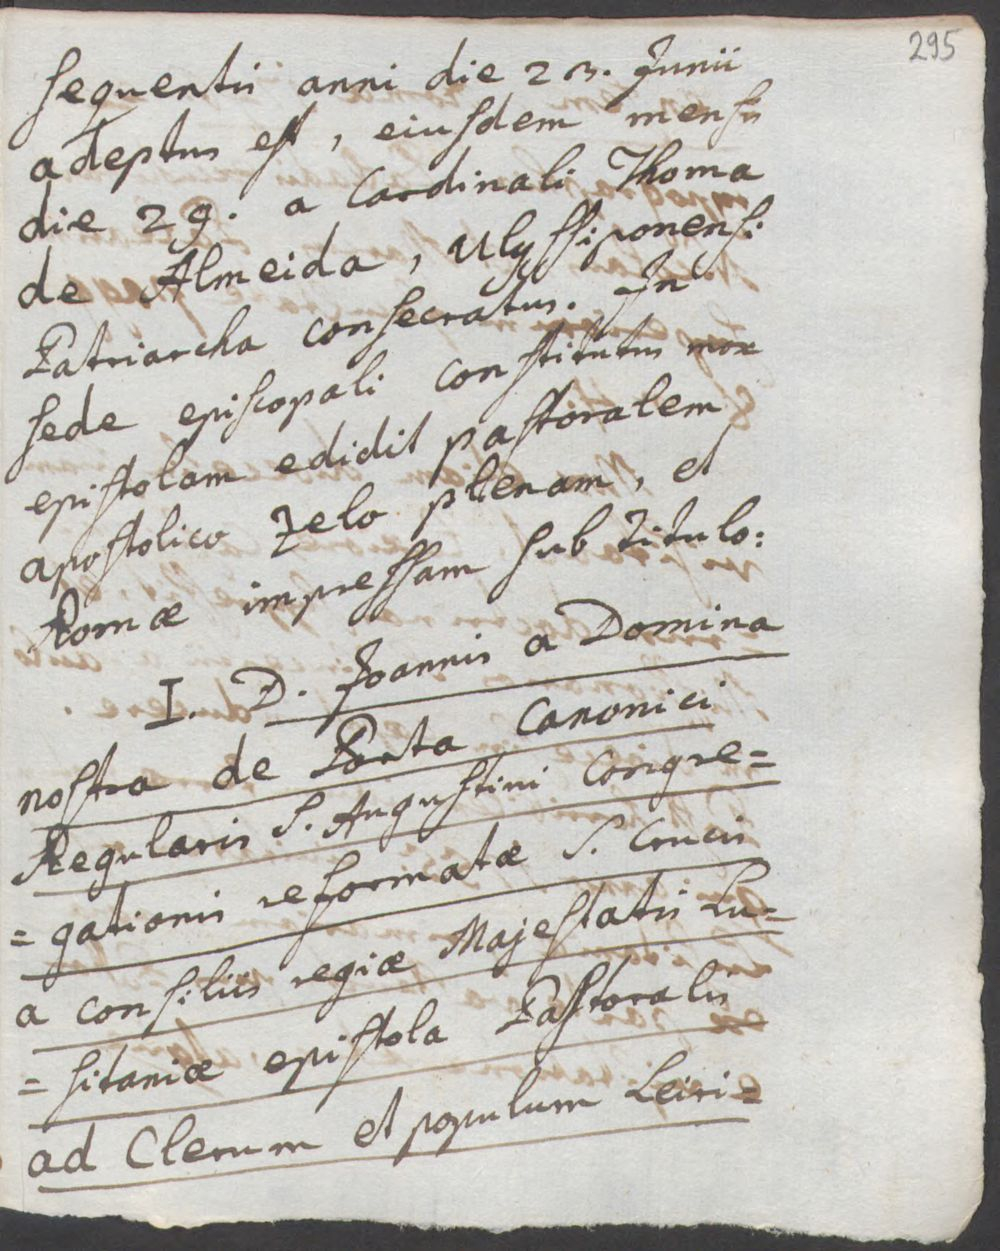 295
sequentis anni die 23. Junii
adeptus est, eiusdem mensis
die 29. a Cardinali Thoma
de Almeida, Ulyssiponensi
Patriarcha consecratus. In
sede episcopali constitutus mox
epistolam edidit pastoralem
apostolico zelo plenam, et
Romæ impressam sub titulo:
I. D. Joannis a Domina
nostra de Porta Canonici
Regularis S. Augustini Congre=
=gationis reformatæ S. Crucis
a consiliis regiæ Majestatis Lu=
=sitaniæ epistola Pastoralis
ad Clerum et populum Leiri=